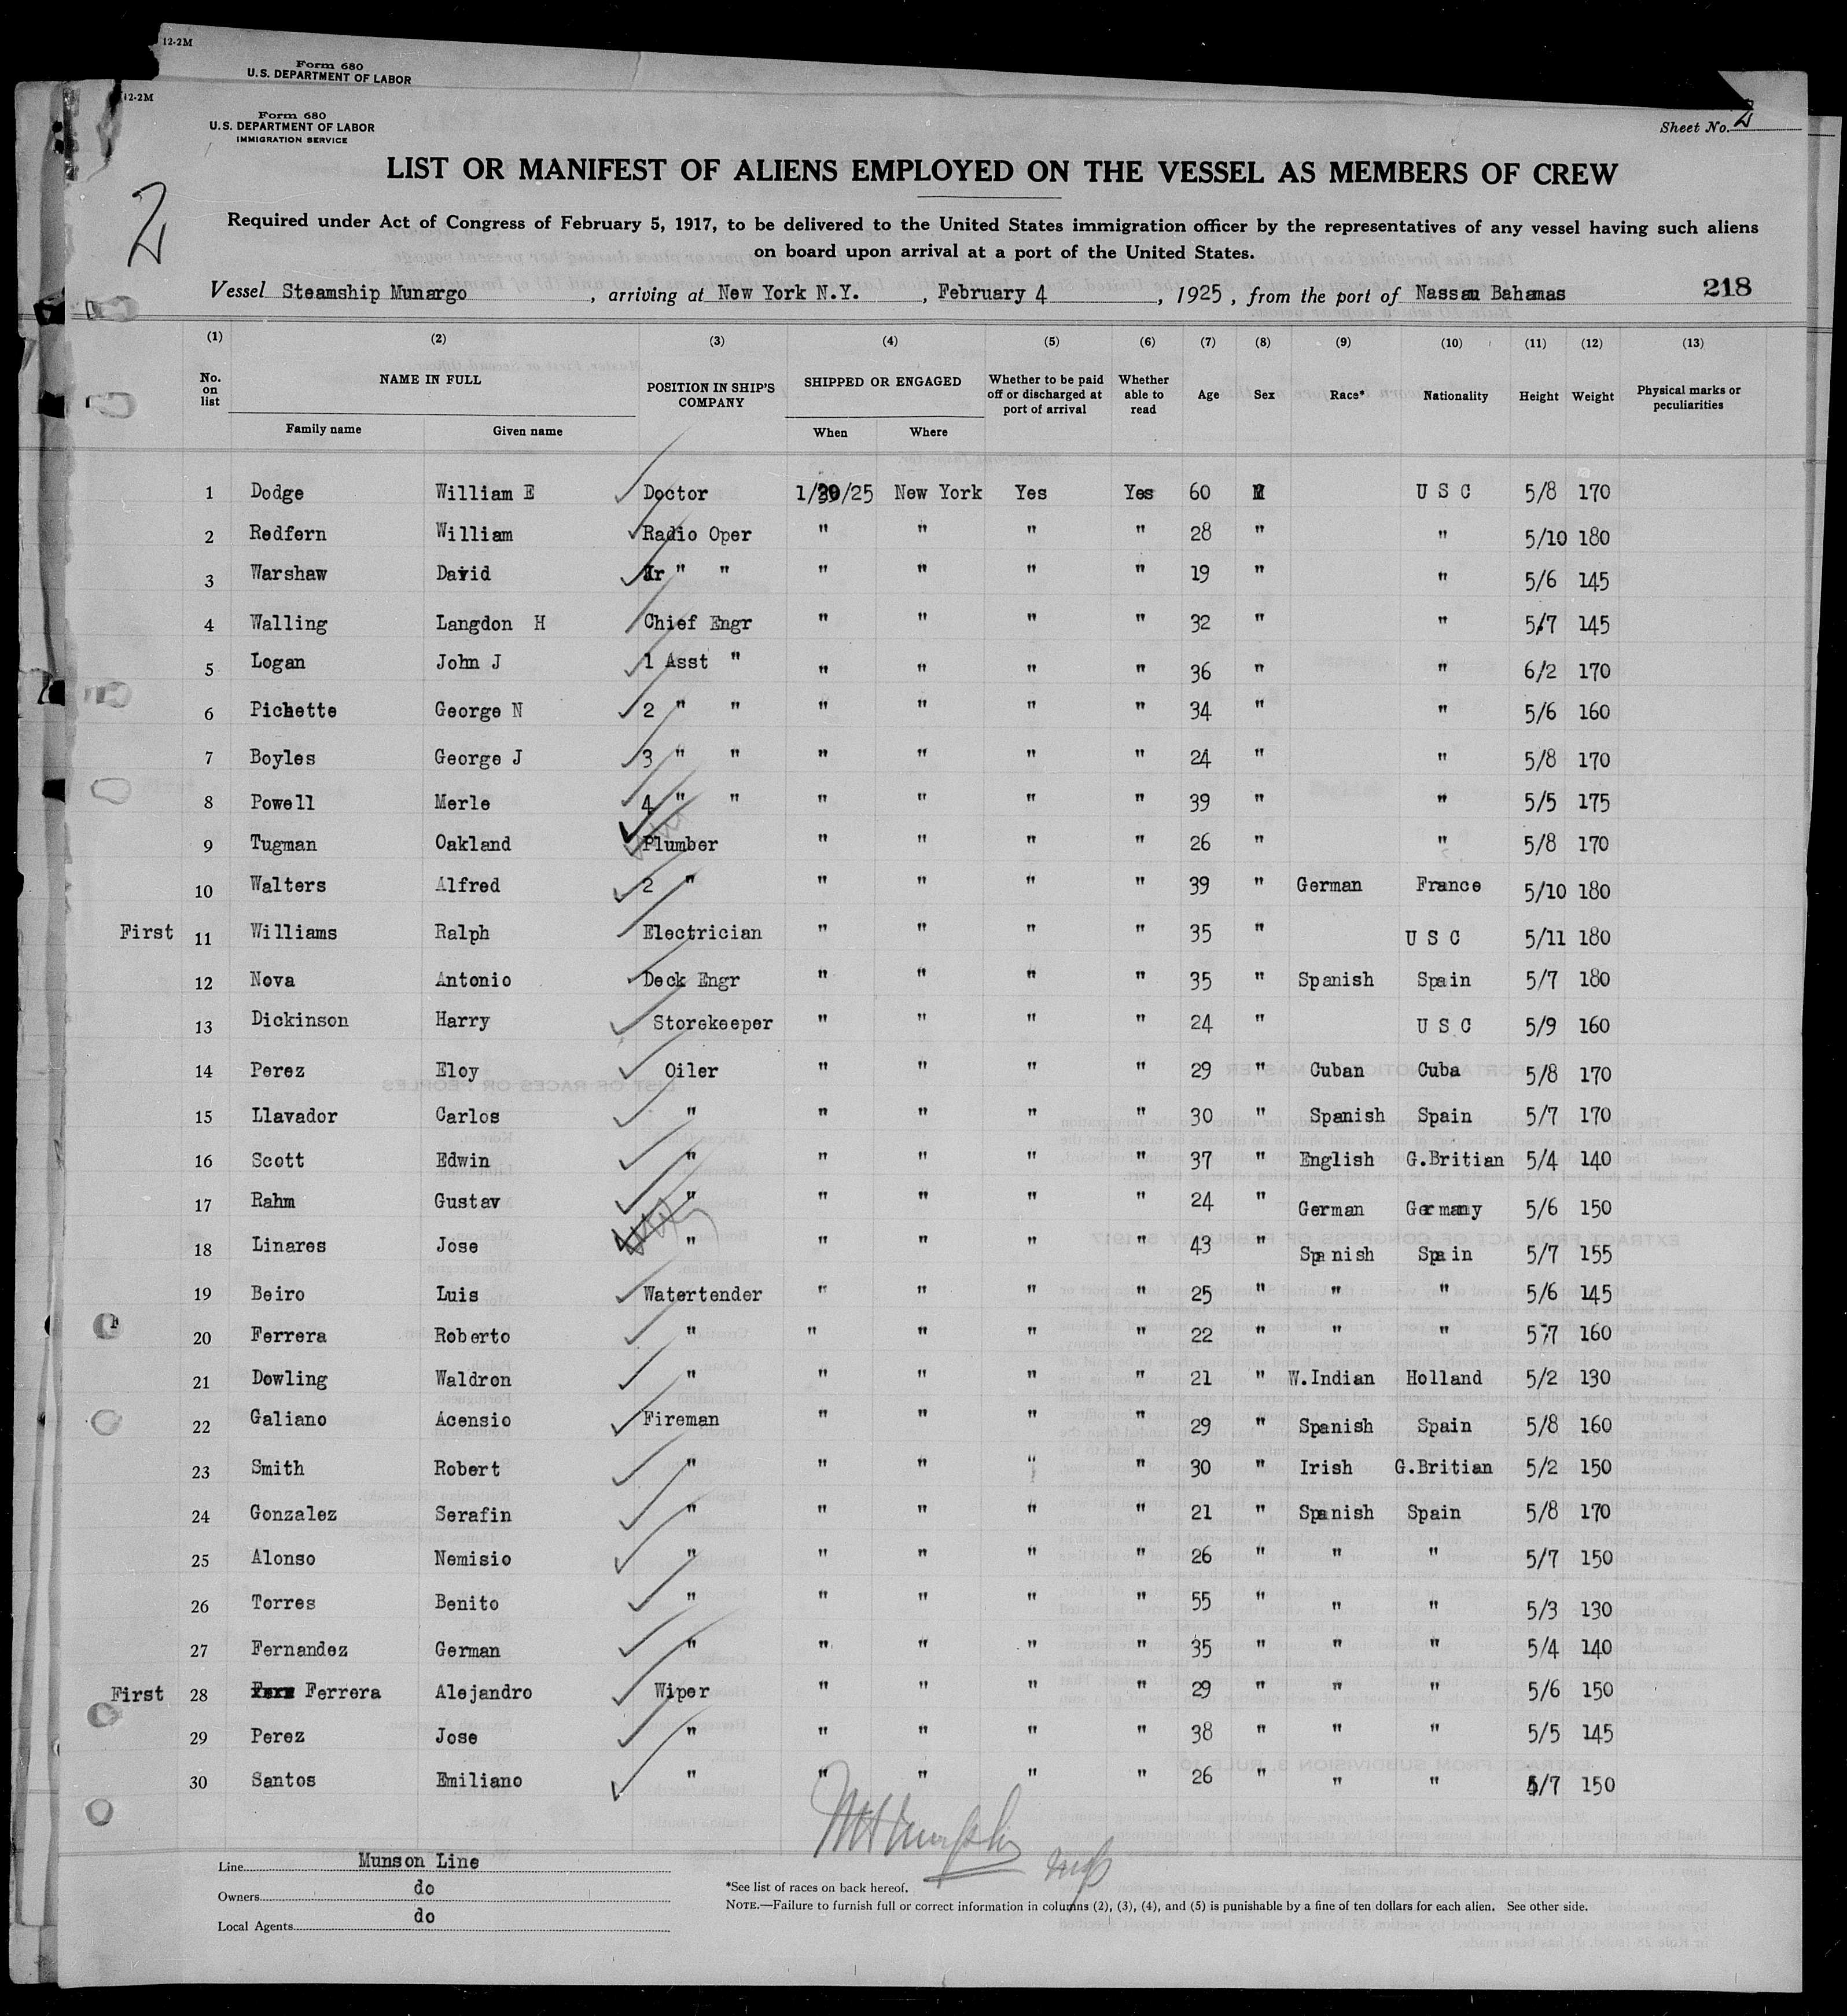 12-2M
Form 680
U.S. DEPARTMENT OF LABOR
12-2M
Form 680
U.S. DEPARTMENT OF LABOR
IMMIGRATION SERVICE
Sheet No. 2
2
LIST OR MANIFEST OF ALIENS EMPLOYED ON THE VESSEL AS MEMBERS OF CREW
Required under Act of Congress of February 5, 1917, to be delivered to the United States immigration officer by the representatives of any vessel having such aliens
on board upon arrival at a port of the United States.
Vessel Steamship Munargo, arriving at New York N.Y., February 4, 1925, from the port of Nassau Bahamas 218
(1) (2) (3) (4) (5) (6) (7) (8) (9) (10) (11) (12) (13)
No. on list NAME IN FULL POSITION IN SHIP'S COMPANY SHIPPED OR ENGAGED Whether to be paid off or discharged at port of arrival Whether able to read Age Sex Race* Nationality Height Weight Physical marks or peculiarities
Family name Given name When Where
1 Dodge William E Doctor 1/30/25 New York Yes Yes 60 M U S C 5/8 170
2 Redfern William Radio Oper " " " " 28 " " 5/10 180
3 Warshaw David Jr " " " " " " 19 " " 5/6 145
4 Walling Langdon H Chief Engr " " " " 32 " " 5/7 145
5 Logan John J 1 Asst " " " " " 36 " " 6/2 170
6 Pichette George N 2 " " " " " " 34 " " 5/6 160
7 Boyles George J 3 " " " " " " 24 " " 5/8 170
8 Powell Merle 4 " " " " " " 39 " " 5/5 175
9 Tugman Oakland Plumber " " " " 26 " " 5/8 170
10 Walters Alfred 2 " " " " " 39 " German France 5/10 180
First 11 Williams Ralph Electrician " " " " 35 " U S C 5/11 180
12 Nova Antonio Deck Engr " " " " 35 " Spanish Spain 5/7 180
13 Dickinson Harry Storekeeper " " " " 24 " U S C 5/9 160
14 Perez Eloy Oiler " " " " 29 " Cuban Cuba 5/8 170
15 Llavador Carlos " " " " " 30 " Spanish Spain 5/7 170
16 Scott Edwin " " " " " 37 " English G.Britian 5/4 140
17 Rahm Gustav " " " " " 24 " German Germany 5/6 150
18 Linares Jose " " " " " 43 " Spanish Spain 5/7 155
19 Beiro Luis Watertender " " " " 25 " " " 5/6 145
20 Ferrera Roberto " " " " " 22 " " " 5/7 160
21 Dowling Waldron " " " " " 21 " W.Indian Holland 5/2 130
22 Galiano Acensio Fireman " " " " 29 " Spanish Spain 5/8 160
23 Smith Robert " " " " " 30 " Irish G.Britian 5/2 150
24 Gonzalez Serafin " " " " " 21 " Spanish Spain 5/8 170
25 Alonso Nemisio " " " " " 26 " " " 5/7 150
26 Torres Benito " " " " " 55 " " " 5/3 130
27 Fernandez German " " " " " 35 " " " 5/4 140
First 28 Ferrera Alejandro Wiper " " " " 29 " " " 5/6 150
29 Perez Jose " " " " " 38 " " " 5/5 145
30 Santos Emiliano " " " " " 26 " " " 5/7 150
Line Munson Line
Owners do
Local Agents do
*See list of races on back hereof.
NOTE.—Failure to furnish full or correct information in columns (2), (3), (4), and (5) is punishable by a fine of ten dollars for each alien. See other side.